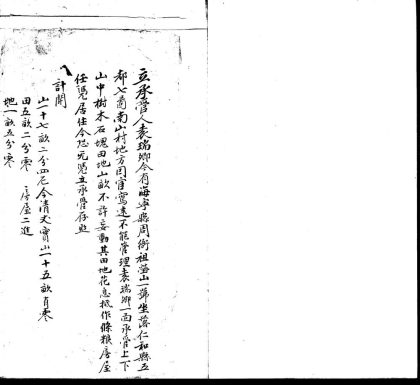 立承管人袁瑞卿今有海寧縣周衙祖塋山一號坐落仁和縣五
都七啚南山村地方因窵遠不能管理袁瑞卿一面承管上下
山中樹木石塊田地山畝不許妄動其田地花息抵作條粮房屋
任憑居住今恐無憑立承管存照
計開
山一十七畝二分四厘今清丈實山一十五畝有零
田五畝二分零 房屋二進
地一畝五分零